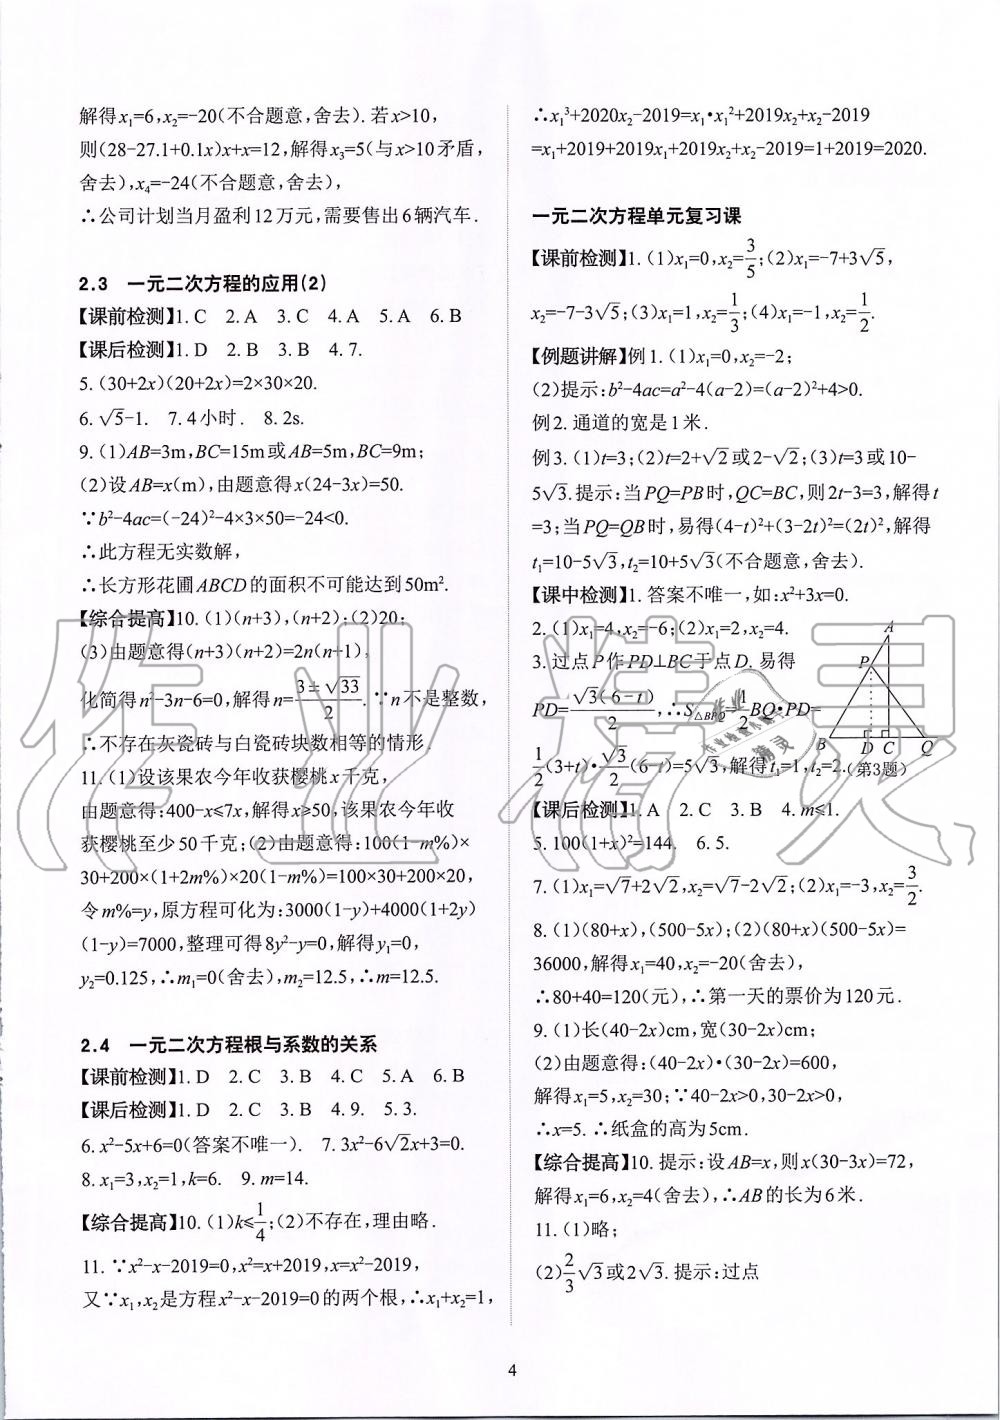 解得x₁=6,x₂=-20(不合题意,舍去).若x>10,
则(28-27.1+0.1x)x+x=12,解得x₃=5(与x>10矛盾,
舍去),x₄=-24(不合题意,舍去),
∴公司计划当月盈利12万元,需要售出6辆汽车.
2.3 一元二次方程的应用(2)
【课前检测】1.C 2.A 3.C 4.A 5.A 6.B
【课后检测】1.D 2.B 3.B 4.7.
5.(30+2x)(20+2x)=2×30×20.
6.√5-1. 7.4小时. 8.2s.
9.(1)AB=3m,BC=15m或AB=5m,BC=9m;
(2)设AB=x(m),由题意得x(24-3x)=50.
∵b²-4ac=(-24)²-4×3×50=-24<0.
∴此方程无实数解,
∴长方形花圃ABCD的面积不可能达到50m².
【综合提高】10.(1)(n+3),(n+2);(2)20;
(3)由题意得(n+3)(n+2)=2n(n-1),
化简得n²-3n-6=0,解得n=(3±√33)/2.∵n不是整数,
∴不存在灰瓷砖与白瓷砖块数相等的情形.
11.(1)设该果农今年收获樱桃x千克,
由题意得:400-x≤7x,解得x≥50,该果农今年收
获樱桃至少50千克;(2)由题意得:100(1-m%)×
30+200×(1+2m%)×20(1-m%)=100×30+200×20,
令m%=y,原方程可化为:3000(1-y)+4000(1+2y)
(1-y)=7000,整理可得8y²-y=0,解得y₁=0,
y₂=0.125,∴m₁=0(舍去),m₂=12.5,∴m=12.5.
2.4 一元二次方程根与系数的关系
【课前检测】1.D 2.C 3.B 4.C 5.A 6.B
【课后检测】1.D 2.C 3.B 4.9. 5.3.
6.x²-5x+6=0(答案不唯一). 7.3x²-6√2x+3=0.
8.x₁=3,x₂=1,k=6. 9.m=14.
【综合提高】10.(1)k≤1/4;(2)不存在,理由略.
11.∵x²-x-2019=0,x²=x+2019,x=x²-2019,
又∵x₁,x₂是方程x²-x-2019=0的两个根,∴x₁+x₂=1,
∴x₁³+2020x₂-2019=x₁•x₁²+2019x₂+x₂-2019
=x₁+2019+2019x₁+2019x₂+x₂-2019=1+2019=2020.
一元二次方程单元复习课
【课前检测】1.(1)x₁=0,x₂=3/5;(2)x₁=-7+3√5,
x₂=-7-3√5;(3)x₁=1,x₂=1/3;(4)x₁=-1,x₂=1/2.
【例题讲解】例1.(1)x₁=0,x₂=-2;
(2)提示:b²-4ac=a²-4(a-2)=(a-2)²+4>0.
例2.通道的宽是1米.
例3.(1)t=3;(2)t=2+√2或2-√2;(3)t=3或10-
5√3.提示:当PQ=PB时,QC=BC,则2t-3=3,解得t
=3;当PQ=QB时,易得(4-t)²+(3-2t)²=(2t)²,解得
t₁=10-5√3,t₂=10+5√3(不合题意,舍去).
【课中检测】1.答案不唯一,如:x²+3x=0.
2.(1)x₁=4,x₂=-6;(2)x₁=2,x₂=4.
3.过点P作PD⊥BC于点D.易得
PD=√3(6-t)/2,∴S△BPQ=1/2BQ•PD=
1/2(3+t)•√3/2(6-t)=5√3,解得t₁=1,t₂=2.
A
P
B D C Q
(第3题)
【课后检测】1.A 2.C 3.B 4.m≤1.
5.100(1+x)²=144. 6.5.
7.(1)x₁=√7+2√2,x₂=√7-2√2;(2)x₁=-3,x₂=3/2.
8.(1)(80+x),(500-5x);(2)(80+x)(500-5x)=
36000,解得x₁=40,x₂=-20(舍去),
∴80+40=120(元),∴第一天的票价为120元.
9.(1)长(40-2x)cm,宽(30-2x)cm;
(2)由题意得:(40-2x)•(30-2x)=600,
解得x₁=5,x₂=30;∵40-2x>0,30-2x>0,
∴x=5.∴纸盒的高为5cm.
【综合提高】10.提示:设AB=x,则x(30-3x)=72,
解得x₁=6,x₂=4(舍去),∴AB的长为6米.
11.(1)略;
(2)2/3√3或2√3.提示:过点
4
作业精灵